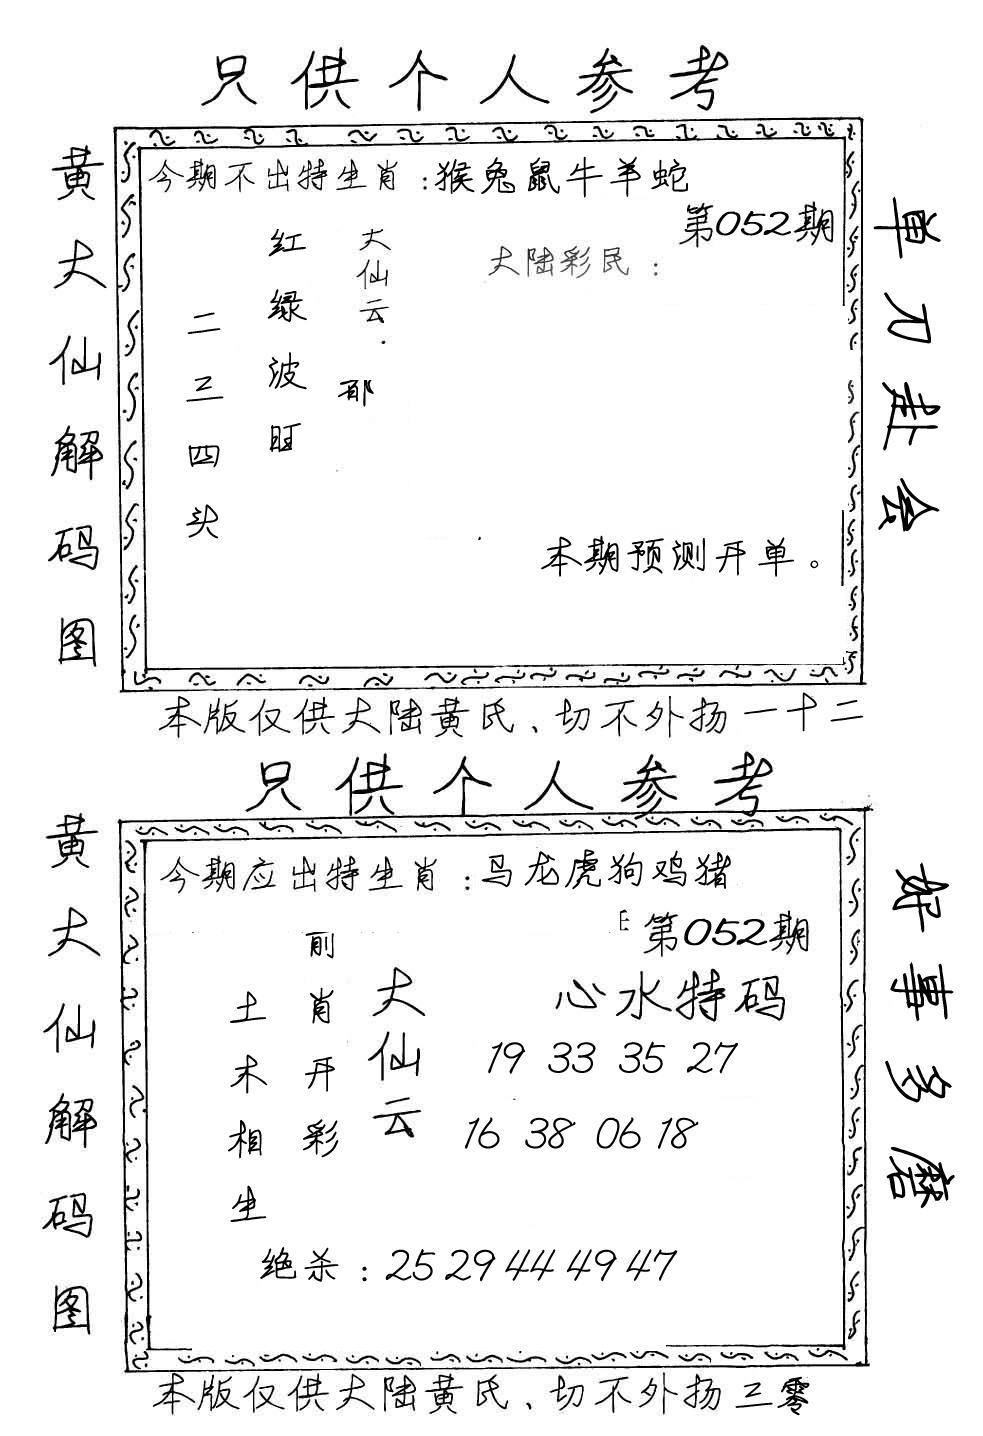 只供个人参考
黄大仙解码图
今期不出特生肖：猴兔鼠牛羊蛇
第052期
大陆彩民：
大仙云：
红绿波旺
二三四头
本期预测开单。
单刀赴会
本版仅供大陆黄氏、切不外扬一十二
只供个人参考
黄大仙解码图
今期应出特生肖：马龙虎狗鸡猪
第052期
心水特码
大仙云
前肖开彩
土木相生
19 33 35 27
16 38 06 18
绝杀：25 29 44 49 47
好事多磨
本版仅供大陆黄氏、切不外扬三零